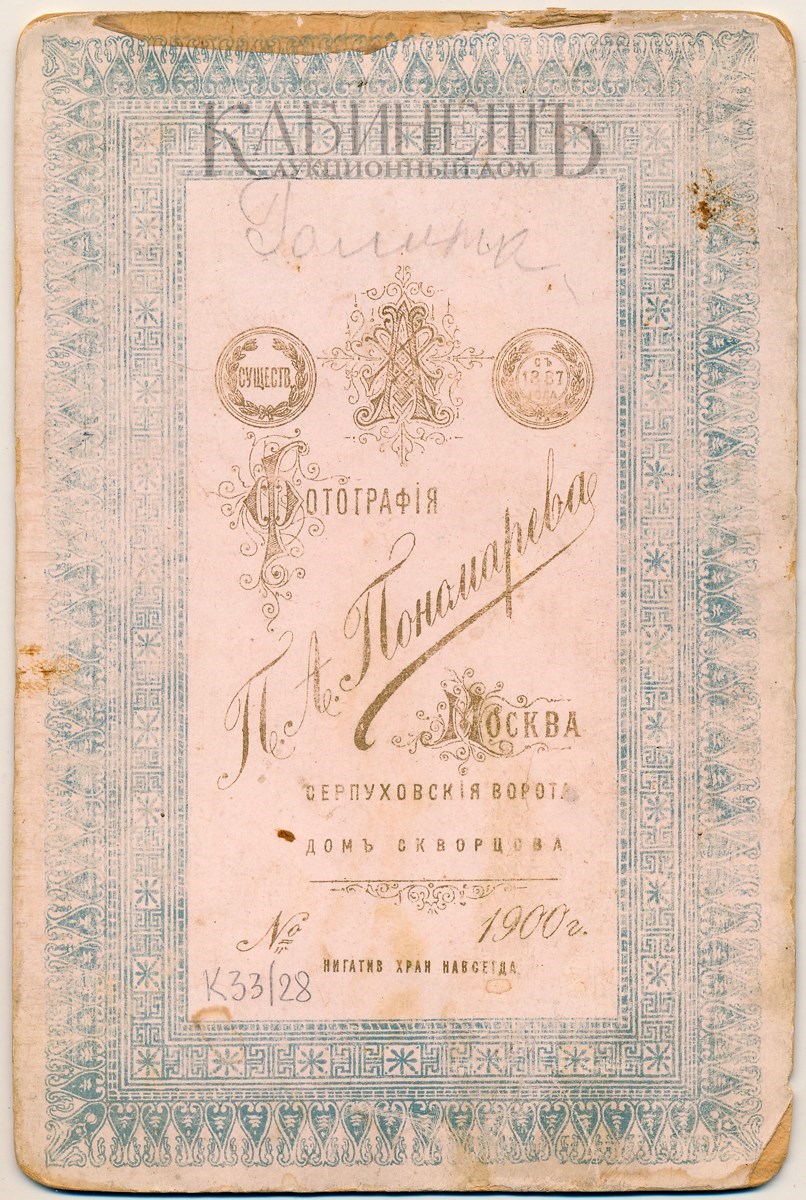 КАБИНЕТЪ
АУКЦИОННЫЙ ДОМ
СУЩЕСТВ.
СЪ
1887
ГОДА
ФОТОГРАФІЯ
П. А. Пономарева
МОСКВА
СЕРПУХОВСКІЯ ВОРОТА
ДОМЪ СКВОРЦОВА
№ 1900 г.
НИГАТИВ ХРАН НАВСЕГДА
К33/28